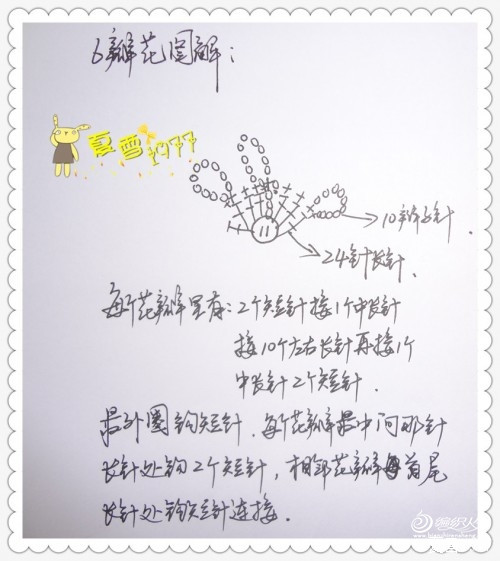 6瓣花图解:
夏雪1977
10辫子针
24针长针.
每个花瓣里有:2个短针接1个中长针
接10个左右长针再接1个
中长针2个短针.
最外圈钩短针.每个花瓣最中间那针
长针处钩2个短针,相邻花瓣每首尾
长针处钩短针连接.
编织人生